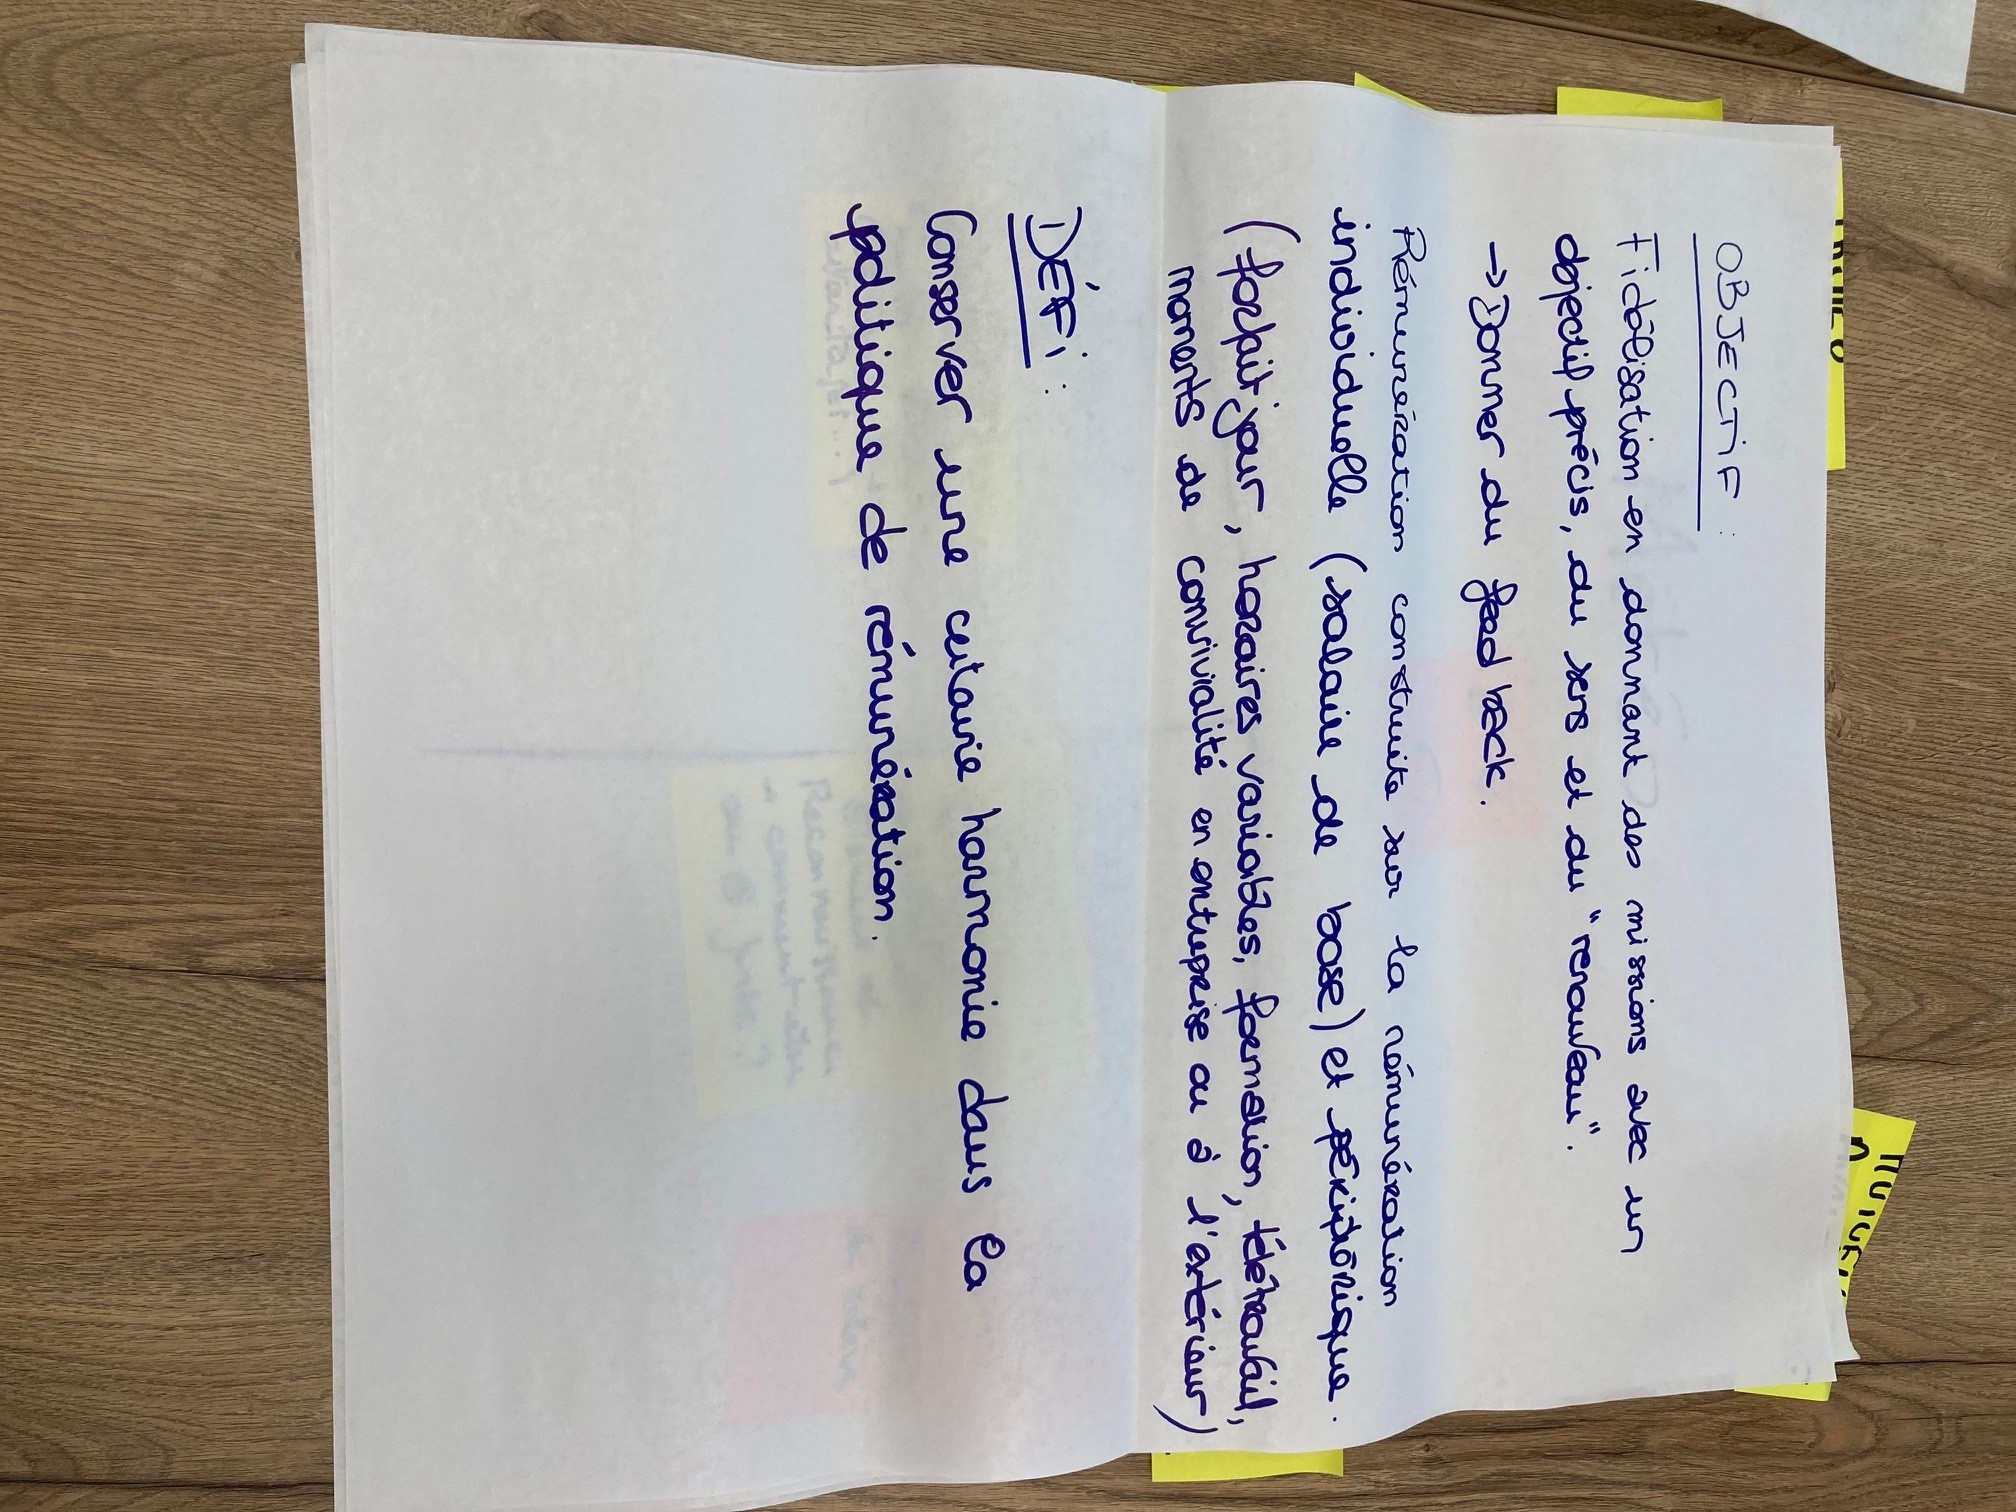 OBJECTIF :
Fidélisation en donnant des missions avec un
objectif précis, du sens et du "renouveau".
→ Donner du feed back.
Rémunération construite sur la rémunération
individuelle (salaire de base) et périphérique.
(forfait jour, horaires variables, formation, télétravail,
moments de convivialité en entreprise ou à l'extérieur)
DÉFI :
Conserver une certaine harmonie dans la
politique de rémunération.